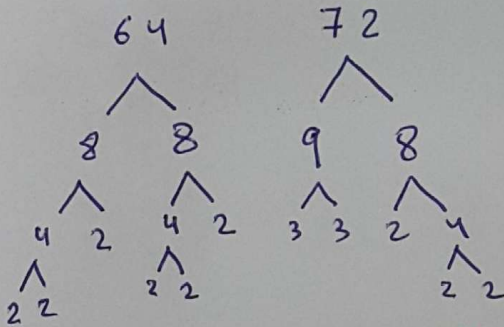 64 72
8 8 9 8
4 2 4 2 3 3 2 4
2 2 2 2 2 2